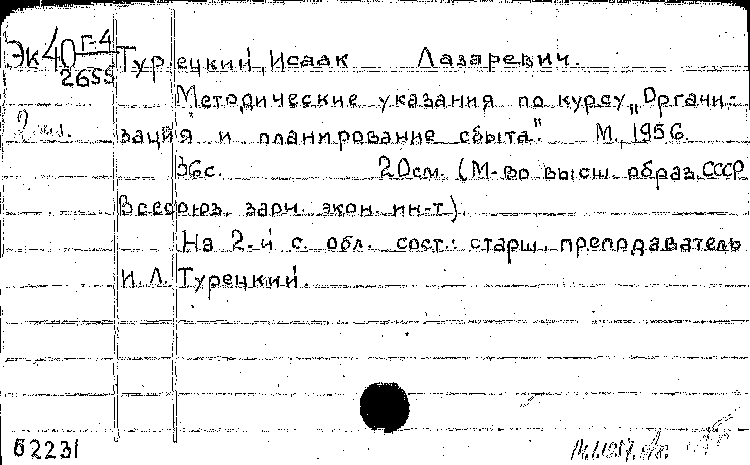 Эк40 Г-4
2655
Турецкий, Исаак Лазаревич.
Методические указания по курсу „Органи-
2 экз.
зация и планирование сбыта". М., 1956.
36с. 20см. (М-во высш. образ. СССР
Всесоюз. заочн. экон. ин-т).
На 2-й с. обл. сост.: старш. преподаватель
И. Л. Турецкий.
Б2231